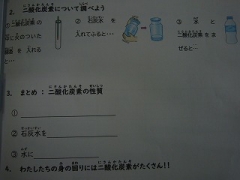 2. 二酸化炭素について調べよう
① 二酸化炭素
② 石灰水 を
③ 水 と
に 火のついた
入れてふると…
二酸化炭素 を ま
線香 を 入れる
ぜると…
と…
3. まとめ：二酸化炭素の性質
①
② 石灰水を
③ 水に
4. わたしたちの身の回りには二酸化炭素がたくさん!!